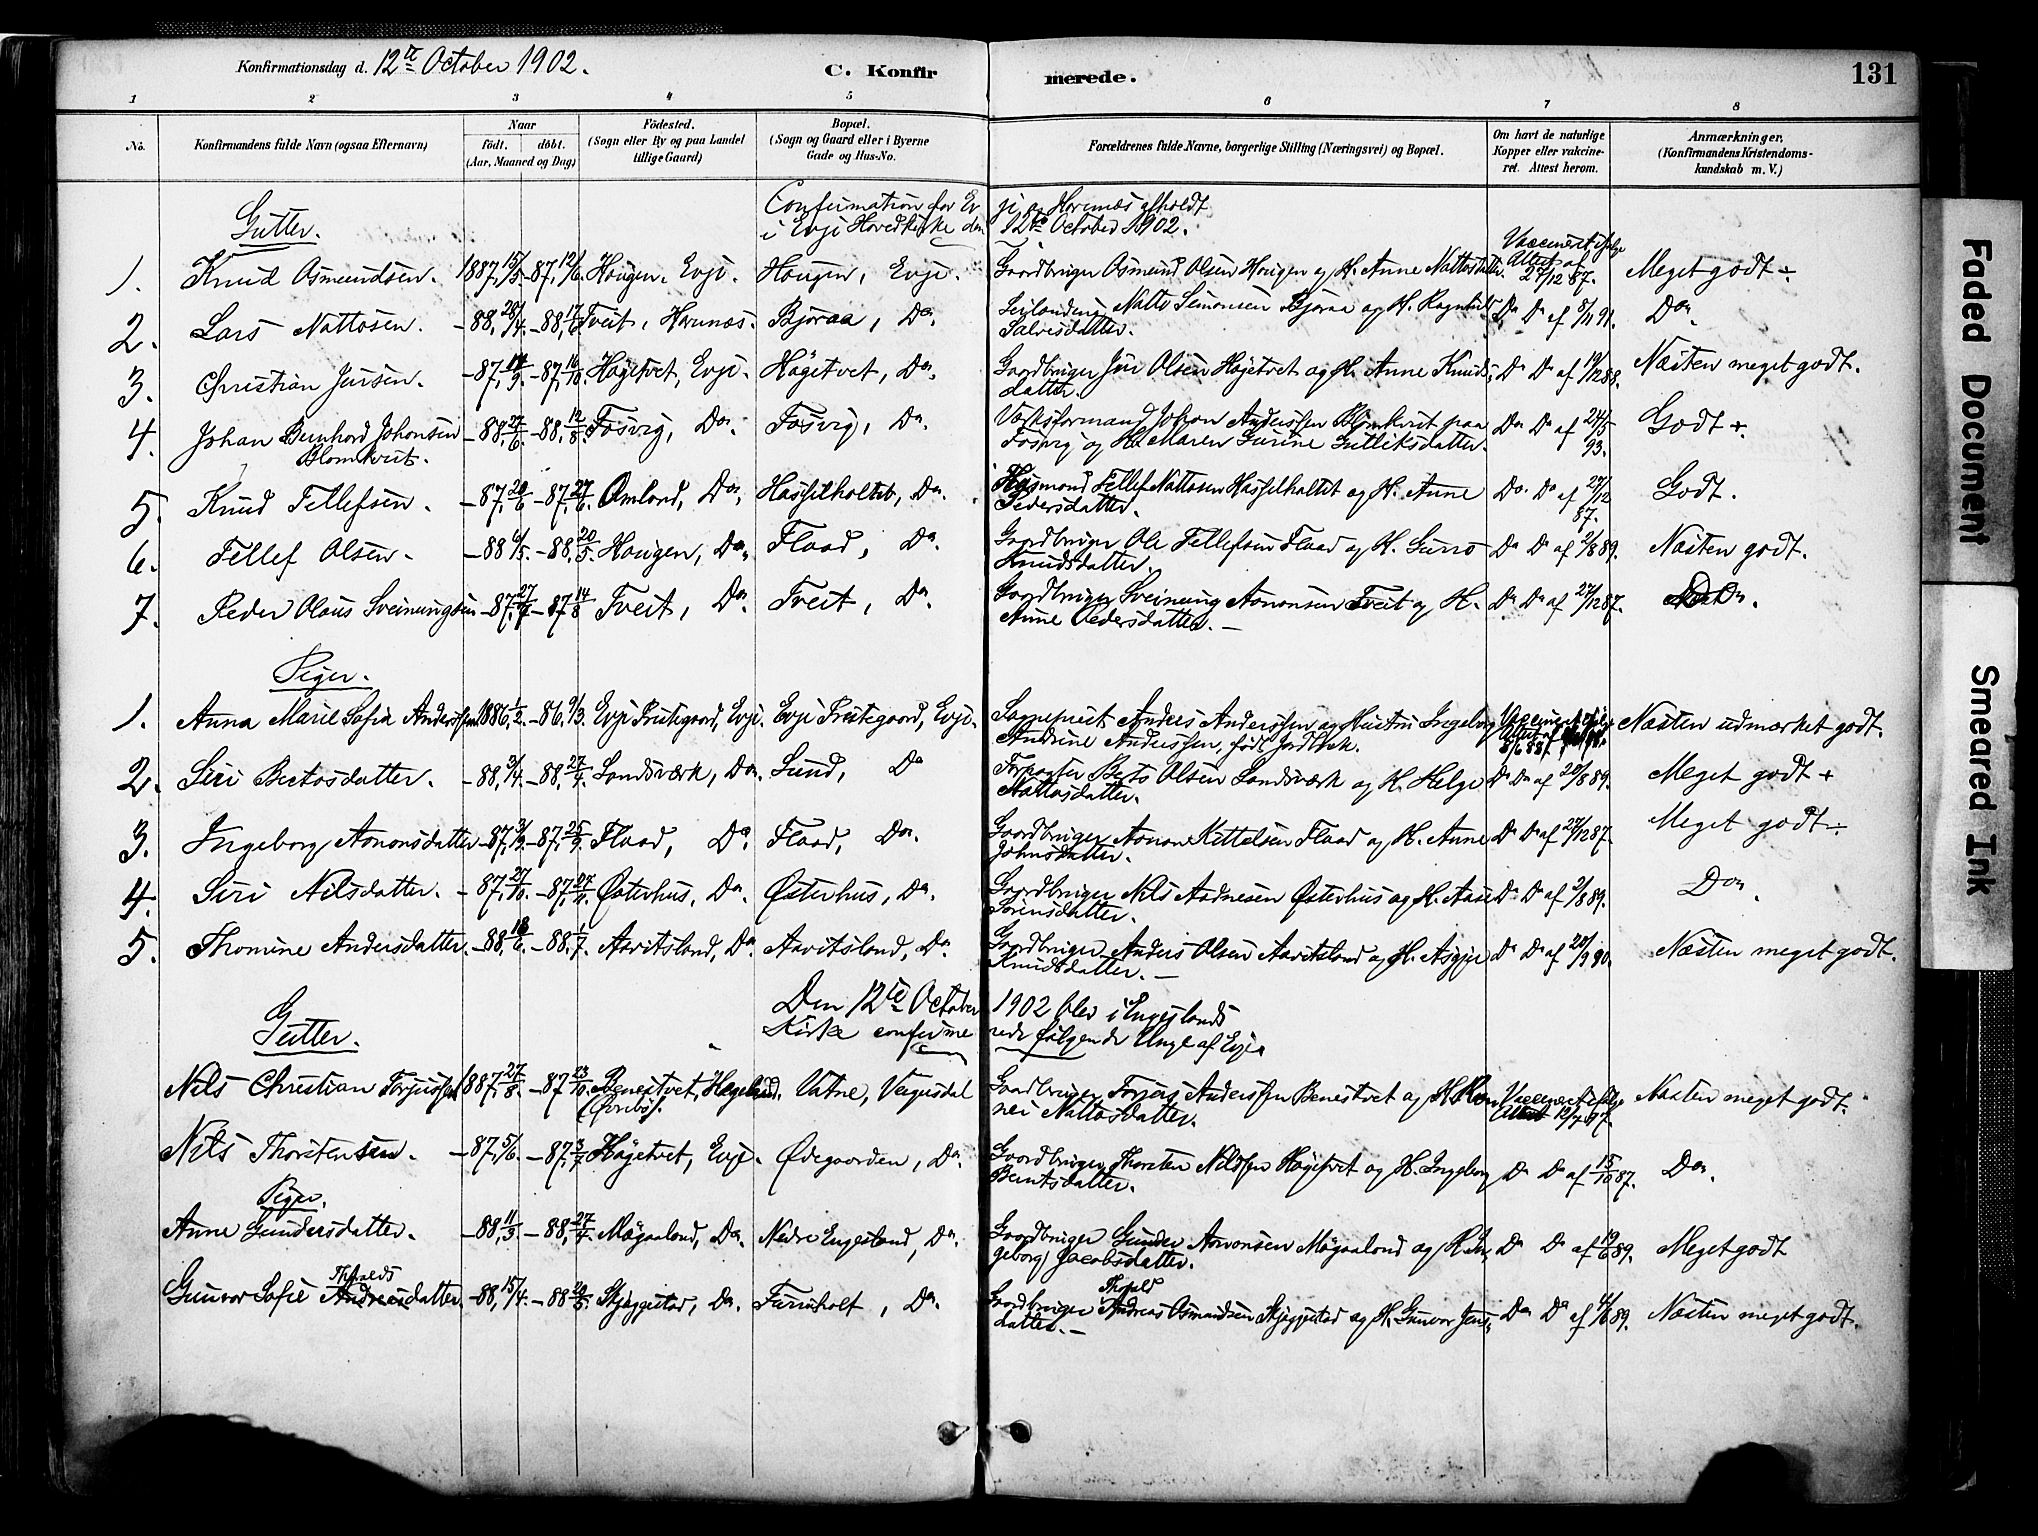 Konfirmationsdag d. 12te October 1902. C. Konfirmerede. 131
1 2 3 4 5 6 7 8
No. Konfirmandens fulde Navn (ogsaa Efternavn) Naar født. døbt. (Aar, Maaned og Dag) Fødested. (Sogn eller By og paa Landet tillige Gaard) Bopæl. (Sogn og Gaard eller i Byerne Gade og Hus-No. Forældrenes fulde Navne, borgerlige Stilling (Næringsvei) og Bopæl. Om havt de naturlige Kopper eller vakcineret. Attest herom. Anmærkninger, (Konfirmandens Kristendomskundskab m. V.)
Confirmation for Evje og Hornnæs afholdt
Gutter. i Evje Hovedkirke den 12te October 1902.
1. Knud Osmundsen. 1887, 15/5 -87, 12/6 Hougen, Evje. Hougen, Evje. Gaardbruger Osmund Olsen Hougen og H. Anne Nattosdatter. Vaccineret ifølge Attest af 27/12 87. Meget godt ÷
2. Lars Nattosen. -88, 28/4 -88, 17/6 Tveit, Hornnæs. Bjoraa, Do. Natto Simonsen Bjoraa og H. Ragnhild Salvesdatter. Do Do af 8/11 91. Do.
3. Christian Jensen. -87, 14/9 -87, 16/10 Høgetvet, Evje. Høgetvet, Do. Gaardbruger Jens Olsen Høgetvet og H. Anne Knudsdatter. Do Do af 19/12 88. Næsten meget godt.
4. Johan Bernhard Johansen Blomkvist. -88, 27/6 -88, 12/8 Fosvig, Do. Fosvig, Do. Johan Anderssen Blomkvist paa Fosvig og H. Maren Gurine Gulleiksdatter. Do Do af 24/5 93. Godt +.
5. Knud Tellefsen. -87, 20/6 -87, 27/6 Omland, Do. Hasselholtet, Do. Husmand Tellef Nattosen Hasselholtet og H. Anne Pedersdatter. Do. Do af 27/12 87. Godt.
6. Tellef Olsen. -88 6/5 -88, 20/5 Hougen, Do. Flaad, Do. Gaardbruger Ole Tellefsen Flaad og H. Gurro Knudsdatter. Do Do af 2/8 89. Næsten godt.
7. Peder Olaus Sveinungsen -87, 27/7 -87, 14/8 Tveit, Do. Tveit, Do. Gaardbruger Sveinung Aanonsen Tveit og H. Anne Pedersdatter. Do Do af 27/12 87. Do.
Piger.
1. Anna Marie Sofia Anderssen 1886, 1/2 -86, 9/3 Evje Prestegaard, Evje. Evje Prestegaard, Evje. Sogneprest Anders Anderssen og Hustru Ingeborg Andrine Anderssen, født Vaccineret ifølge Attest af 8/6 88. Næsten udmærket godt.
2. Siri Bertosdatter -88, 3/4 -88, 27/4 Landsværk, Do. Sund, Do Forpagter Berto Olsen Landsværk og H. Helge Nattosdatter. Do Do af 20/8 89. Meget godt +
3. Ingeborg Aanonsdatter -87, 3/9 -87, 25/9 Flaad, Do. Flaad, Do. Gaardbruger Aanon Kittelsen Flaad og H. Anne Johnsdatter. Do Do af 27/12 87. Meget godt ÷.
4. Siri Nilsdatter. -87, 27/10 -87, 27/11 Østerhus, Do. Østerhus, Do. Gaardbruger Nils Aadnesen Østerhus og H. Aase Sørensdatter. Do Do af 2/8 89. Do.
5. Thomine Andersdatter. -88, 18/6 -88, 1/7 Aavitsland, Do. Aavitsland, Do. Gaardbruger Anders Olsen Aavitsland og H. Asgjer Knudsdatter. Do Do af 20/9 90. Næsten meget godt.
Den 12te October 1902 blev i Engeslands
Gutter. Kirke confirmerede følgende Unge af Evje.
Nils Christian Torjussen 1887, 27/8 -87 23/10 Benestvet, Hægeland. (Øvrebø). Vatne, Vegusdal Gaardbruger Torjus Anderssen Benestvet og H. Ronnei Nattosdatter. Vaccineret ifølge Attest 12/7 97. Næsten meget godt.
Nils Thorstensen. -87, 5/6 -87, 3/7 Høgetvet, Evje. Ødegaarden, Do. Gaardbruger Thorsten Nilsson Høgetvet og H. Ingeborg Berntsdatter. Do Do af 15/10 87. Do.
Piger.
Anne Gundersdatter. -88, 11/3 -88, 27/4 Møgaaland, Do. Nedre Engesland, Do. Gaardbruger Gunder Aanonsen Møgaaland og H. Ingeborg Jacobsdatter. Do Do af 19/6 89. Meget godt
Gunvor Sofie Andreasdatter. -88, 15/4 -88 Skjeggestad, Do. Furuholt, Do. Gaardbruger Andreas Osmundsen Skjeggestad og H. Gunvor Jensdatter. Do Do af 89. Næsten meget godt.
Faded Document
Smeared Ink